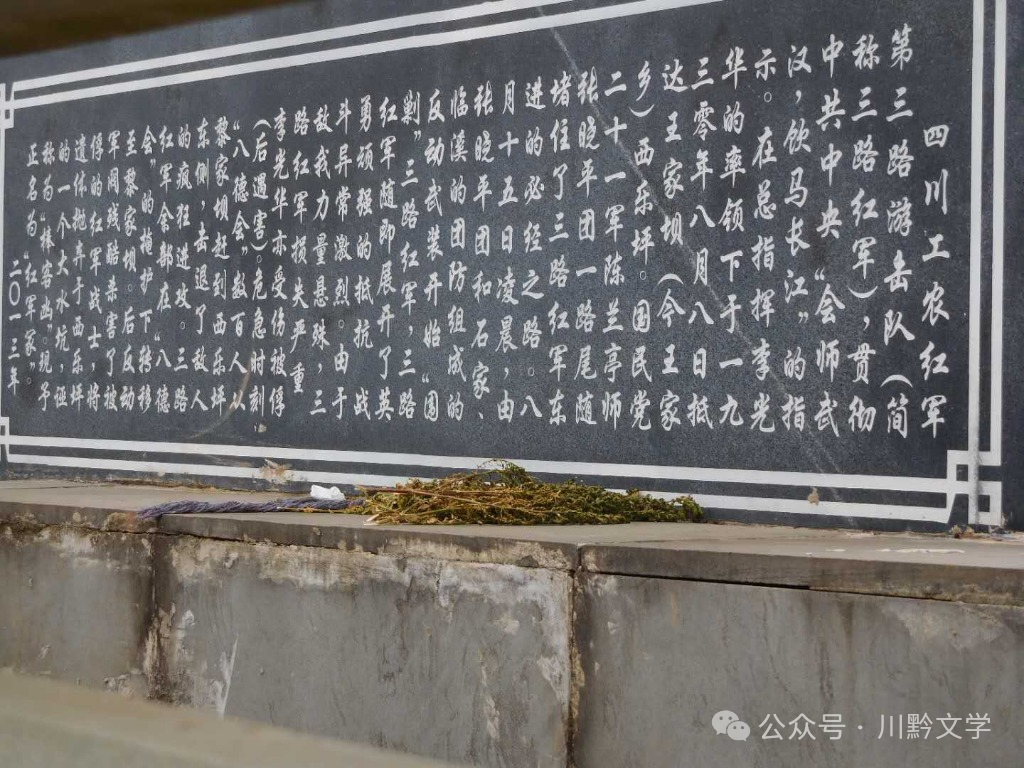 四川工农红军
第三路游击队(简
称三路红军),贯彻
中共中央“会师武
汉,饮马长江”的指
示。在总指挥李光
华的率领下于一九
三零年八月八日抵
达王家坝(今王家
乡)西乐坪。国民党
二十一军陈兰亭师
张晓平团一路尾随
堵住了三路红军东
进的必经之路。八
月十五日凌晨,由
张晓平团和石家、
临溪的团防组成的
反动武装开始“围
剿”三路红军,三路
红军随即展开了英
勇顽强的抵抗,战
斗异常激烈。由于
敌我力量悬殊,三
路红军损失严重
李光华亦受伤被俘
(后遇害)。危急时刻、
“八德会”数百人以
黎家坝赶到西乐坪
东侧,击退了敌人
的疯狂进攻。三路
红军余部在“八德
会”的掩护下转移
至黎家坝。后反动
军阀残酷杀害了被
俘的红军战士,将
遗体抛弃于西乐坪
的一个大水坑,诬
称为“棒客凼”。现予
正名为“红军冢”。
二〇一三年
公众号·川黔文学